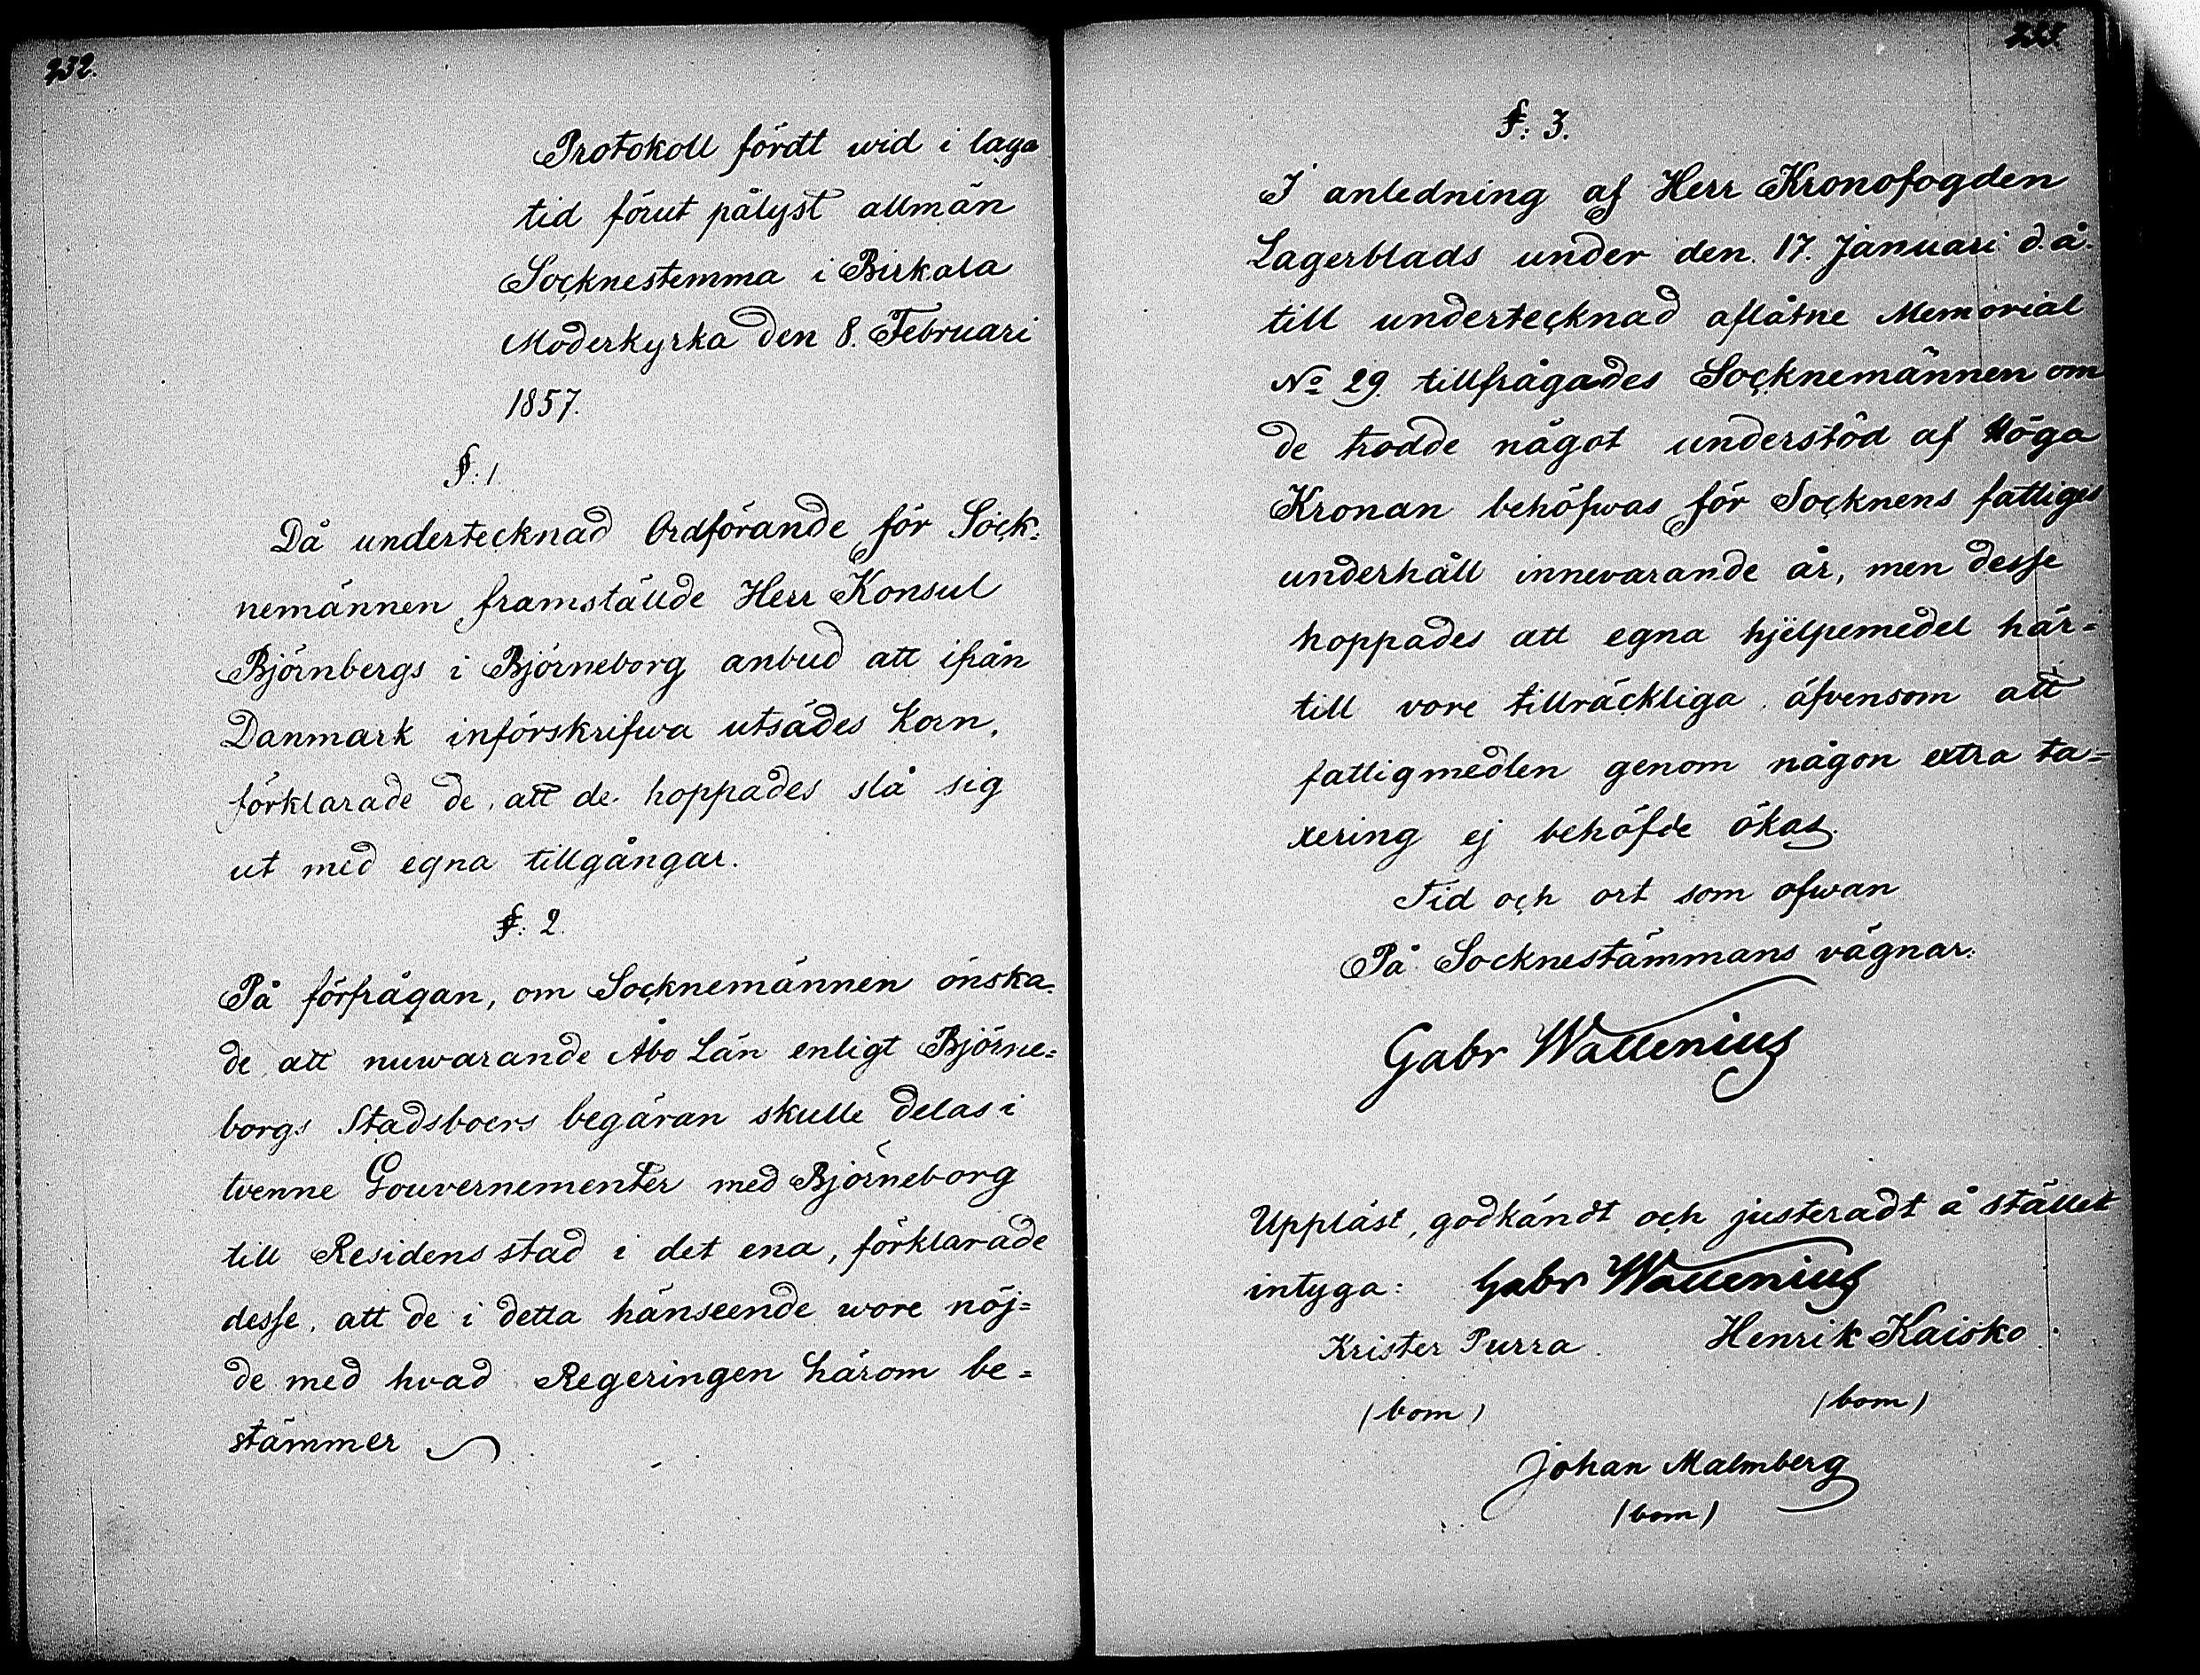 252.
Protokoll fördt wid i laga
tid förut pålyst allmän
Socknestemma i Birkala
Moderkyrka den 8. Februari
1857.
§: 1.
Då undertecknad Ordförande för Sock=
nemännen framstälde Herr Konsul
Björnbergs i Björneborg anbud att ifrån
Danmark införskrifwa utsädes Korn,
förklarade de, att de hoppades slå sig
ut med egna tillgångar.
§: 2.
På förfrågan, om Socknemännen önska=
de att nuwarande Åbo Län enligt Björne=
borgs Stadsboers begäran skulle delas i
tvenne Gouvernementer med Björneborg
till Residens stad i det ena, förklarade
desse, att de i detta hänseende wore nöj=
de med hvad Regeringen härom be=
stämmer
§: 3.
I anledning af Herr Kronofogden
Lagerblads under den 17. Januari d.å.
till undertecknad aflåtne Memorial
No 29. tillfrågades Socknemännen om
de trodde något understöd af Höga
Kronan behöfwas för Socknens fattiges
underhåll innevarande år, men desse
hoppades att egna hjelpemedel här=
till vore tillräckliga äfvensom att
fattigmedlen genom någon extra ta=
xering ej behöfde ökas.
Tid och ort som ofwan
På Socknestämmans vägnar:
Gabr Wallenius
Uppläst, godkändt och justeradt å stället
intyga: Gabr Wallenius
Krister Purra. Henrik Kaisko.
(bom) (bom)
Johan Malmberg
(bom)